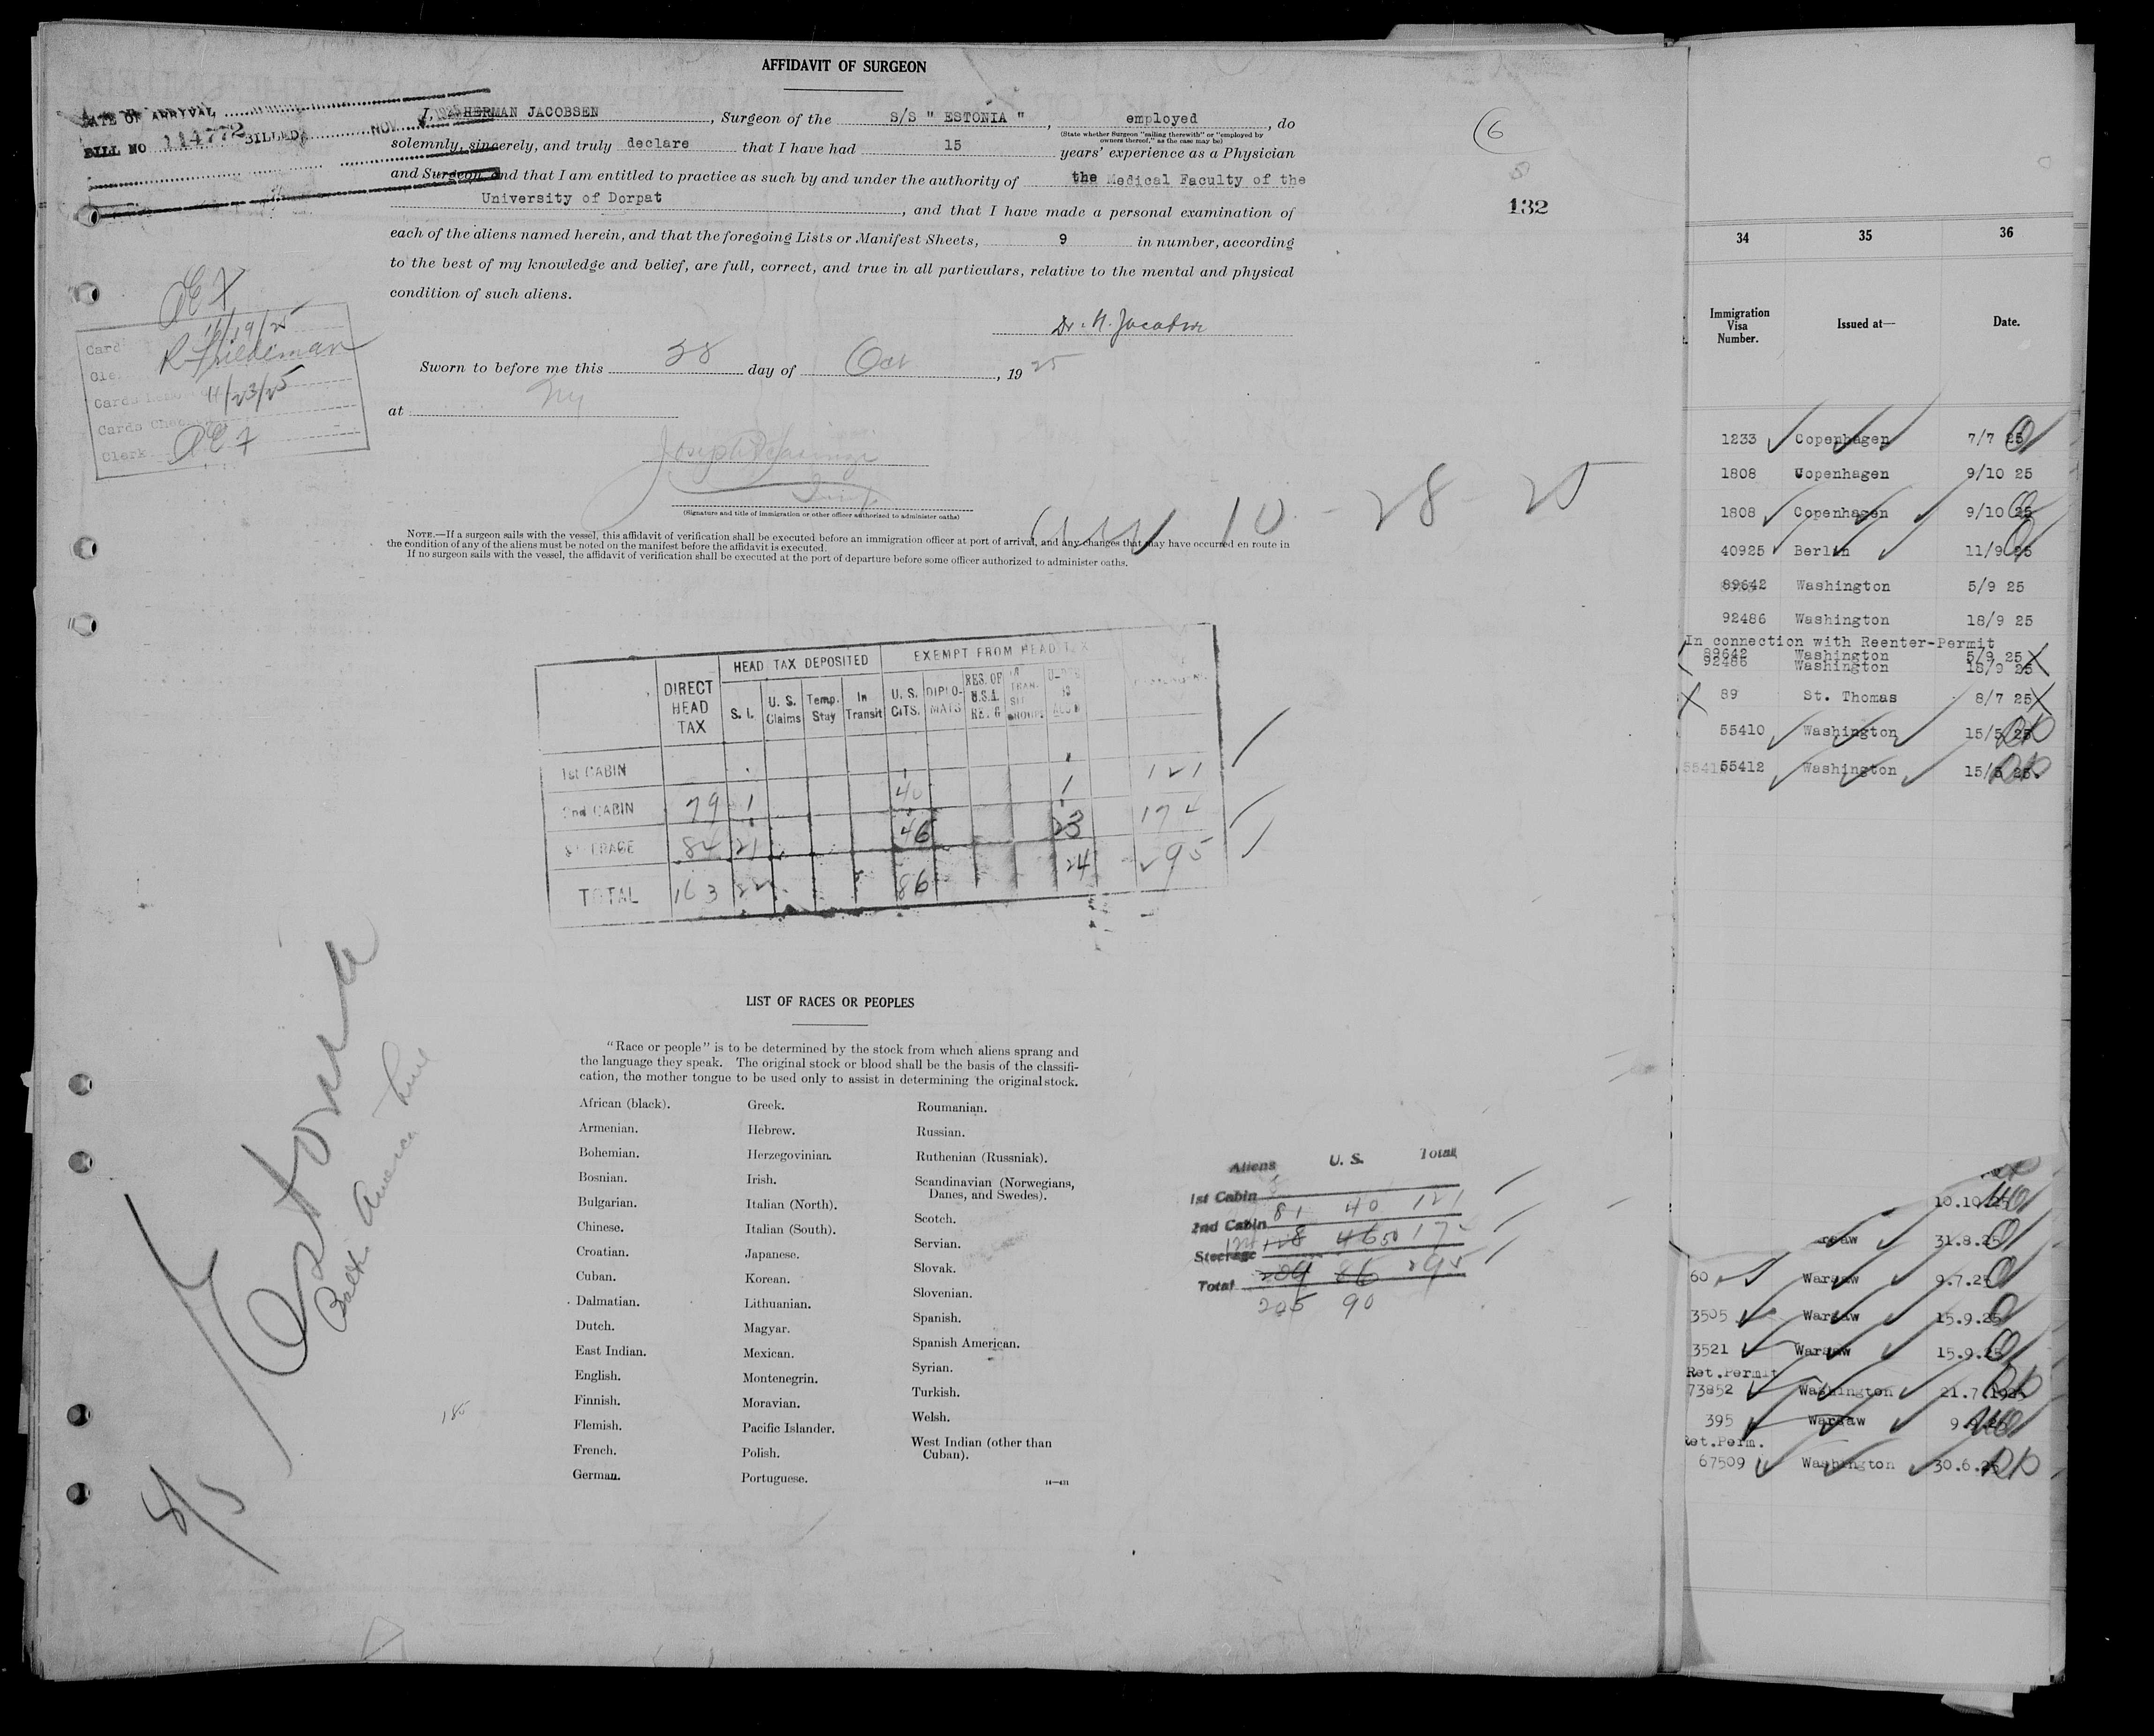 AFFIDAVIT OF SURGEON
DATE OF ARRIVAL
BILL NO 114772 BILLED NOV 1925
I, HERMAN JACOBSEN, Surgeon of the S/S " ESTONIA ", employed, do
(State whether Surgeon "sailing therewith" or "employed by
owners thereof," as the case may be)
solemnly, sincerely, and truly declare that I have had 15 years' experience as a Physician
and Surgeon, and that I am entitled to practice as such by and under the authority of the Medical Faculty of the
University of Dorpat, and that I have made a personal examination of
each of the aliens named herein, and that the foregoing Lists or Manifest Sheets, 9 in number, according
to the best of my knowledge and belief, are full, correct, and true in all particulars, relative to the mental and physical
condition of such aliens.
6
132
Dr. H. Jacobsen
Sworn to before me this 28 day of Oct, 1925
at NY
(Signature and title of immigration or other officer authorized to administer oaths)
Card
11/19/25
R Friedeman
Cards
11/23/25
Cards
Clerk
10 - 28 - 25
NOTE.—If a surgeon sails with the vessel, this affidavit of verification shall be executed before an immigration officer at port of arrival, and any changes that may have occurred en route in
the condition of any of the aliens must be noted on the manifest before the affidavit is executed.
If no surgeon sails with the vessel, the affidavit of verification shall be executed at the port of departure before some officer authorized to administer oaths.
HEAD TAX DEPOSITED EXEMPT FROM HEAD TAX
DIRECT HEAD TAX S. I. U. S. Claims Temp. Stay In Transit U. S. CITS. DIPLOMATS RES. OF U.S.A. RE. G
1st CABIN
2nd CABIN 79 1 40 1 121
STEERAGE 84 21 46 23 174
TOTAL 163 22 86 24 295
Estonia
Baltic America Line
LIST OF RACES OR PEOPLES
"Race or people" is to be determined by the stock from which aliens sprang and
the language they speak. The original stock or blood shall be the basis of the classifi-
cation, the mother tongue to be used only to assist in determining the original stock.
African (black).
Armenian.
Bohemian.
Bosnian.
Bulgarian.
Chinese.
Croatian.
Cuban.
Dalmatian.
Dutch.
East Indian.
English.
Finnish.
Flemish.
French.
German.
Greek.
Hebrew.
Herzegovinian.
Irish.
Italian (North).
Italian (South).
Japanese.
Korean.
Lithuanian.
Magyar.
Mexican.
Montenegrin.
Moravian.
Pacific Islander.
Polish.
Portuguese.
Roumanian.
Russian.
Ruthenian (Russniak).
Scandinavian (Norwegians,
Danes, and Swedes).
Scotch.
Servian.
Slovak.
Slovenian.
Spanish.
Spanish American.
Syrian.
Turkish.
Welsh.
West Indian (other than
Cuban).
Aliens U. S. Total
1st Cabin
2nd Cabin 81 40 121
Steerage 124 128 46 50 17
Total 209 86 295
205 90
185
34 35 36
Immigration Visa Number. Issued at— Date.
1233 Copenhagen 7/7 25
1808 Copenhagen 9/10 25
1808 Copenhagen 9/10 25
40925 Berlin 11/9 25
89642 Washington 5/9 25
92486 Washington 18/9 25
In connection with Reenter-Permit
89642 Washington 5/9 25
92486 Washington 18/9 25
89 St. Thomas 8/7 25
55410 Washington 15/5 25
55412 Washington 15/5 25.
10.10.25
arsaw 31.8.25
60 Warsaw 9.7.25
3505 Warsaw 15.9.25
3521 Warsaw 15.9.25
Ret.Permit
73852 Washington 21.7.1925
395 Warsaw
Ret.Perm.
67509 Washington 30.6.25